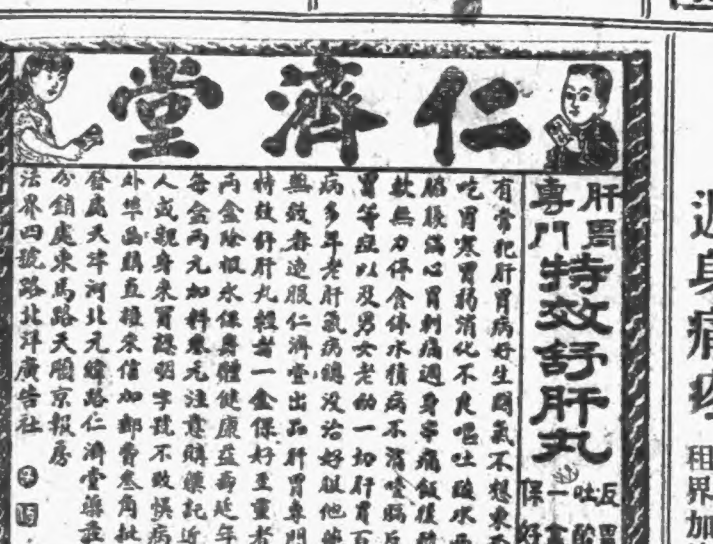 仁濟堂
肝胃
專門
特效舒肝丸
反胃
吐酸
一盒
保好
有常犯肝胃病好生悶氣不想東西
吃胃寒胃弱消化不良嘔吐酸水兩
脇脹滿心胃刺痛週身串痛飯後
軟無力停食停水積病不消噎膈反
胃等症以及男女老幼一切肝胃百
病多年老肝氣病總沒治好服他藥
無效者速服仁濟堂出品肝胃專門
特效舒肝丸輕者一盒保好至重者
兩盒除根永保身體健康益壽延年
每盒兩元加料叁元注意購藥記近
人或親身來買認明字號不致悞病
外埠函購直接來信加郵費叁角批
發處天津河北元緯路仁濟堂藥莊
分銷處東馬路天順京報房
法界四號路北洋廣告社
週身痛疼
租界加